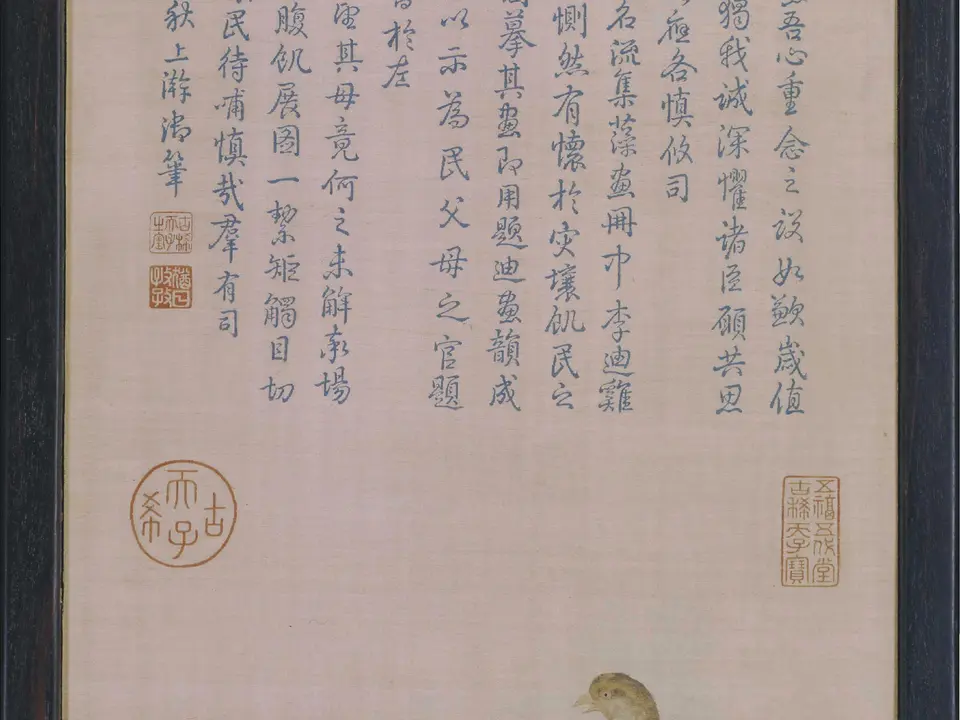 吾心重念之設如歉歲值
獨我誠深懼諸臣願共思
應各慎攸司
名流集藻畫冊中李迪雞
惻然有懷於災壤飢民之
摹其畫即用題迪畫韻成
以示為民父母之官題
於左
其母竟何之未解牽場
腹飢展圖一絜矩觸目切
民待哺慎哉羣有司
上澣御筆
古稀天子
猶日孜孜
古希天子
五福五代堂古稀天子寶